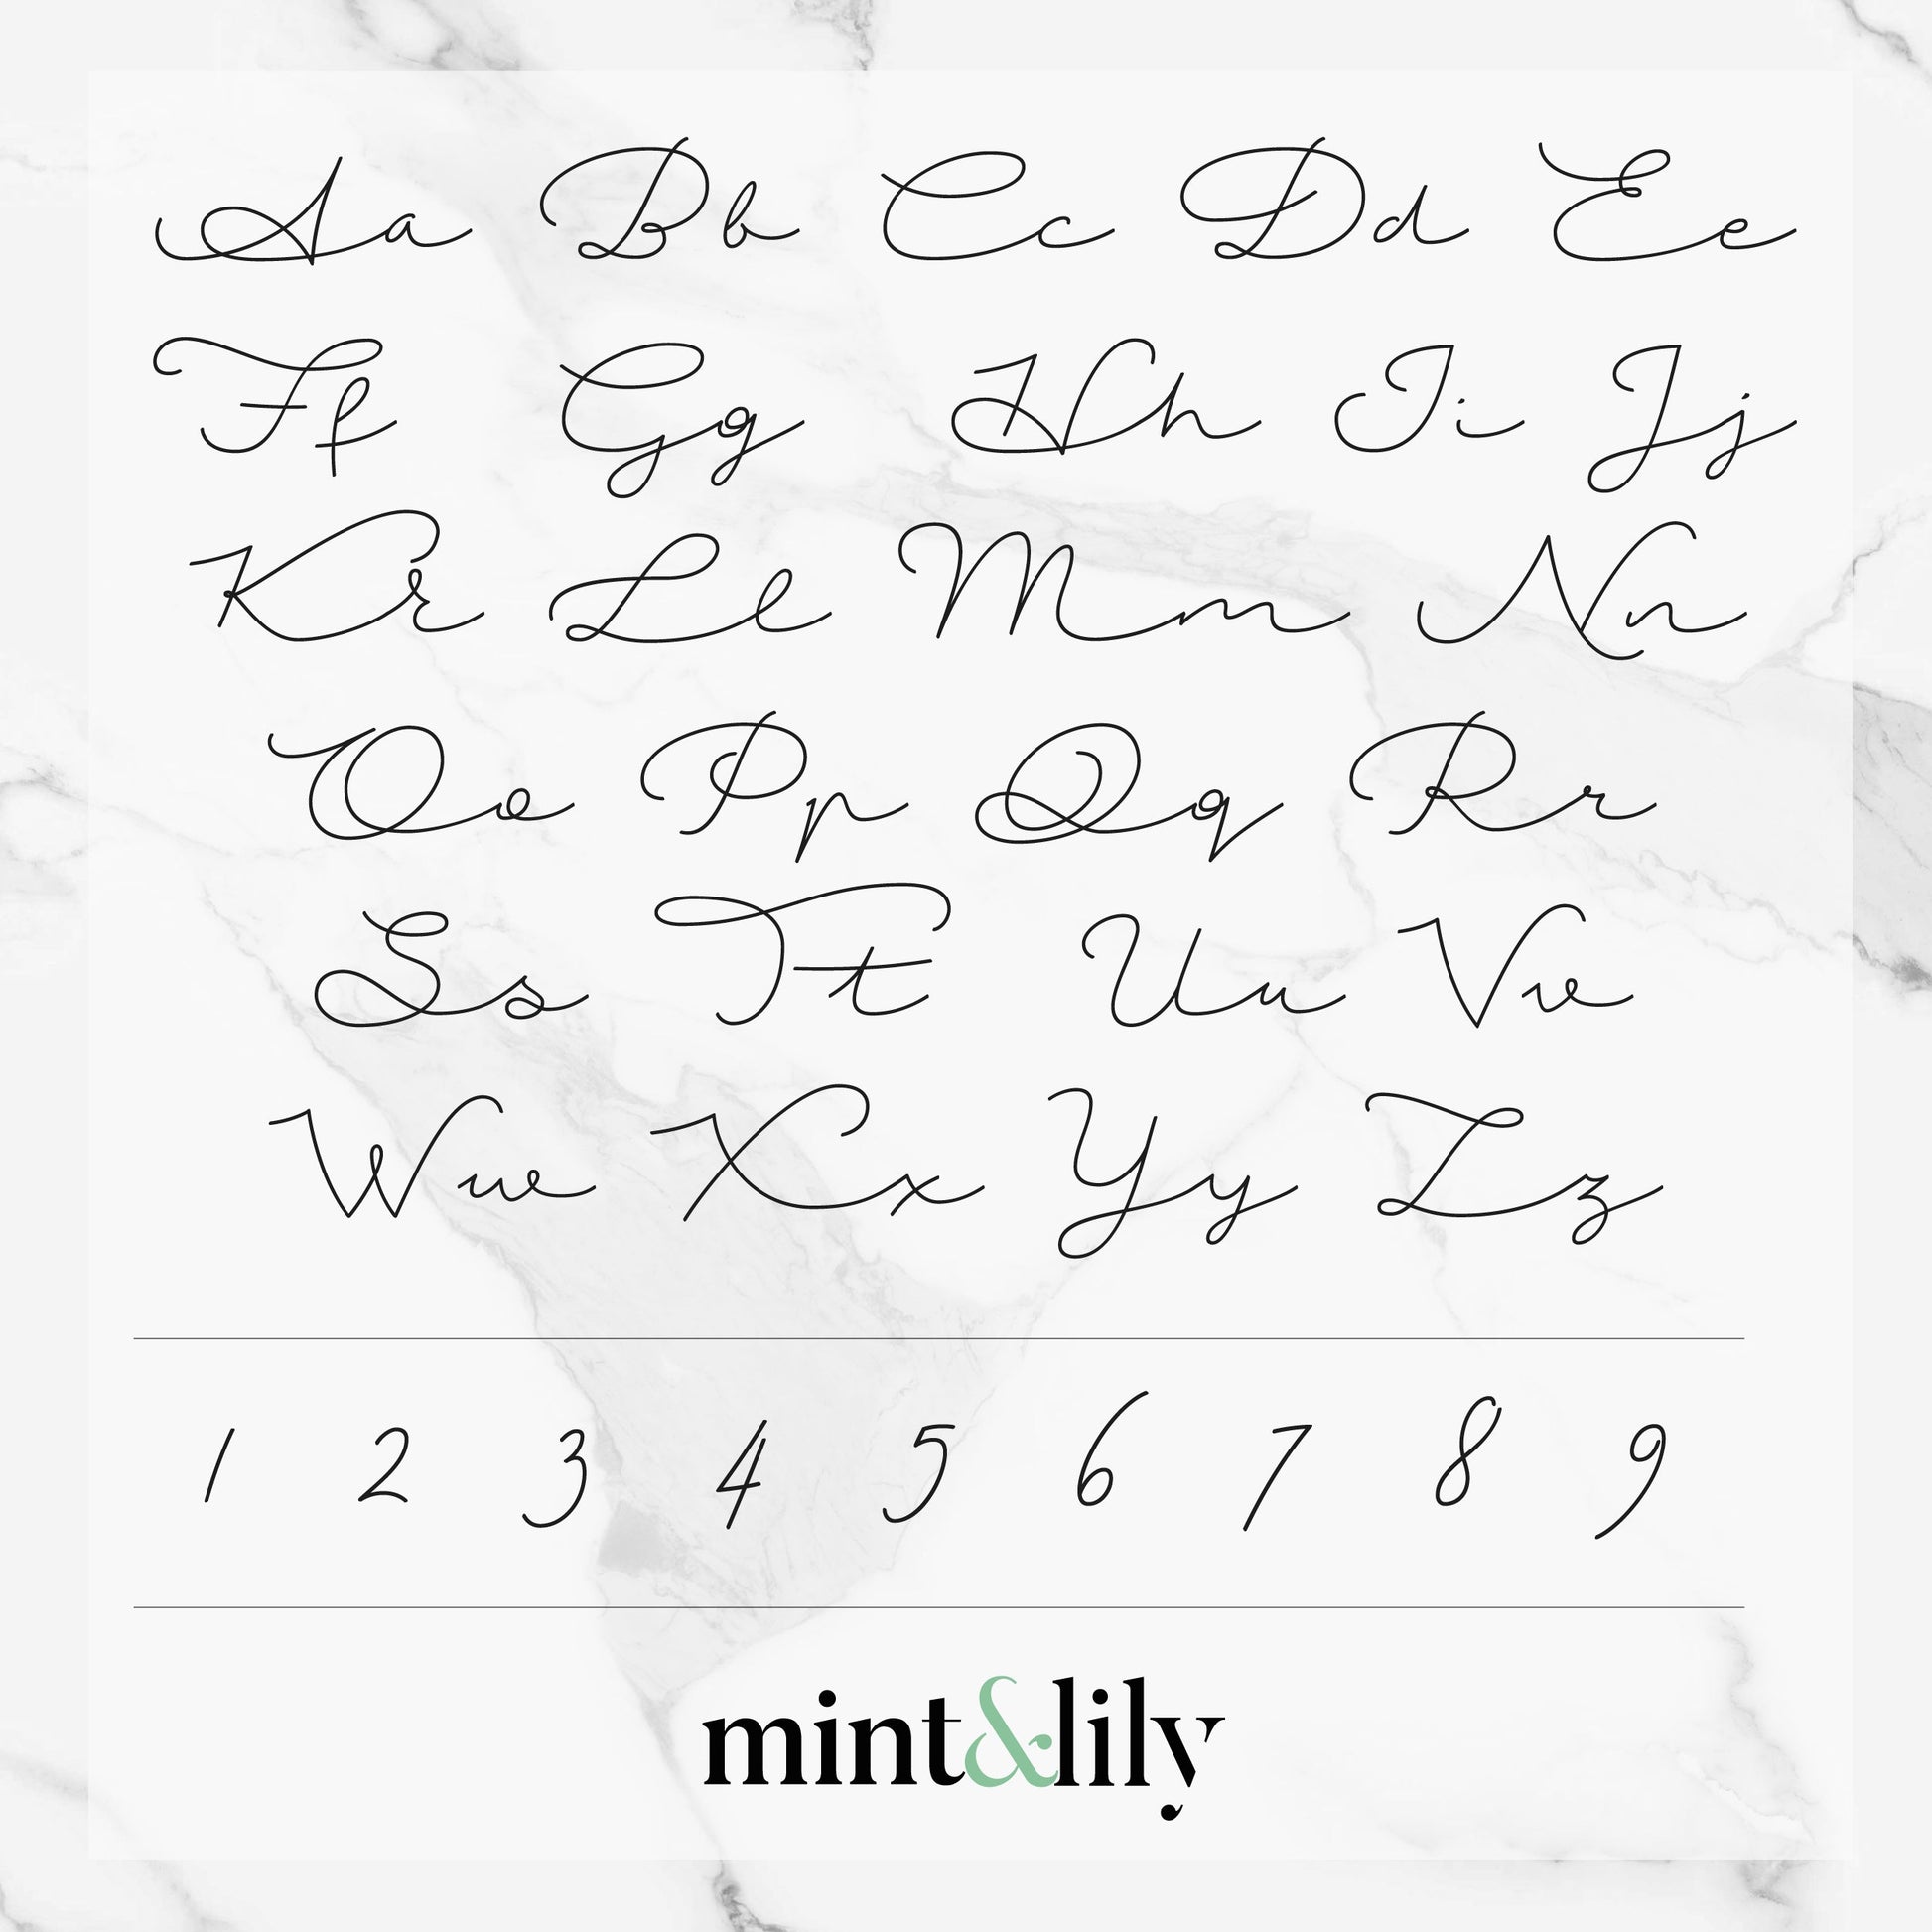 Aa Bb Cc Dd Ee
Ff Gg Hh Ii Jj
Kk Ll Mm Nn
Oo Pp Qq Rr
Ss Tt Uu Vv
Ww Xx Yy Zz
1 2 3 4 5 6 7 8 9
mint&lily